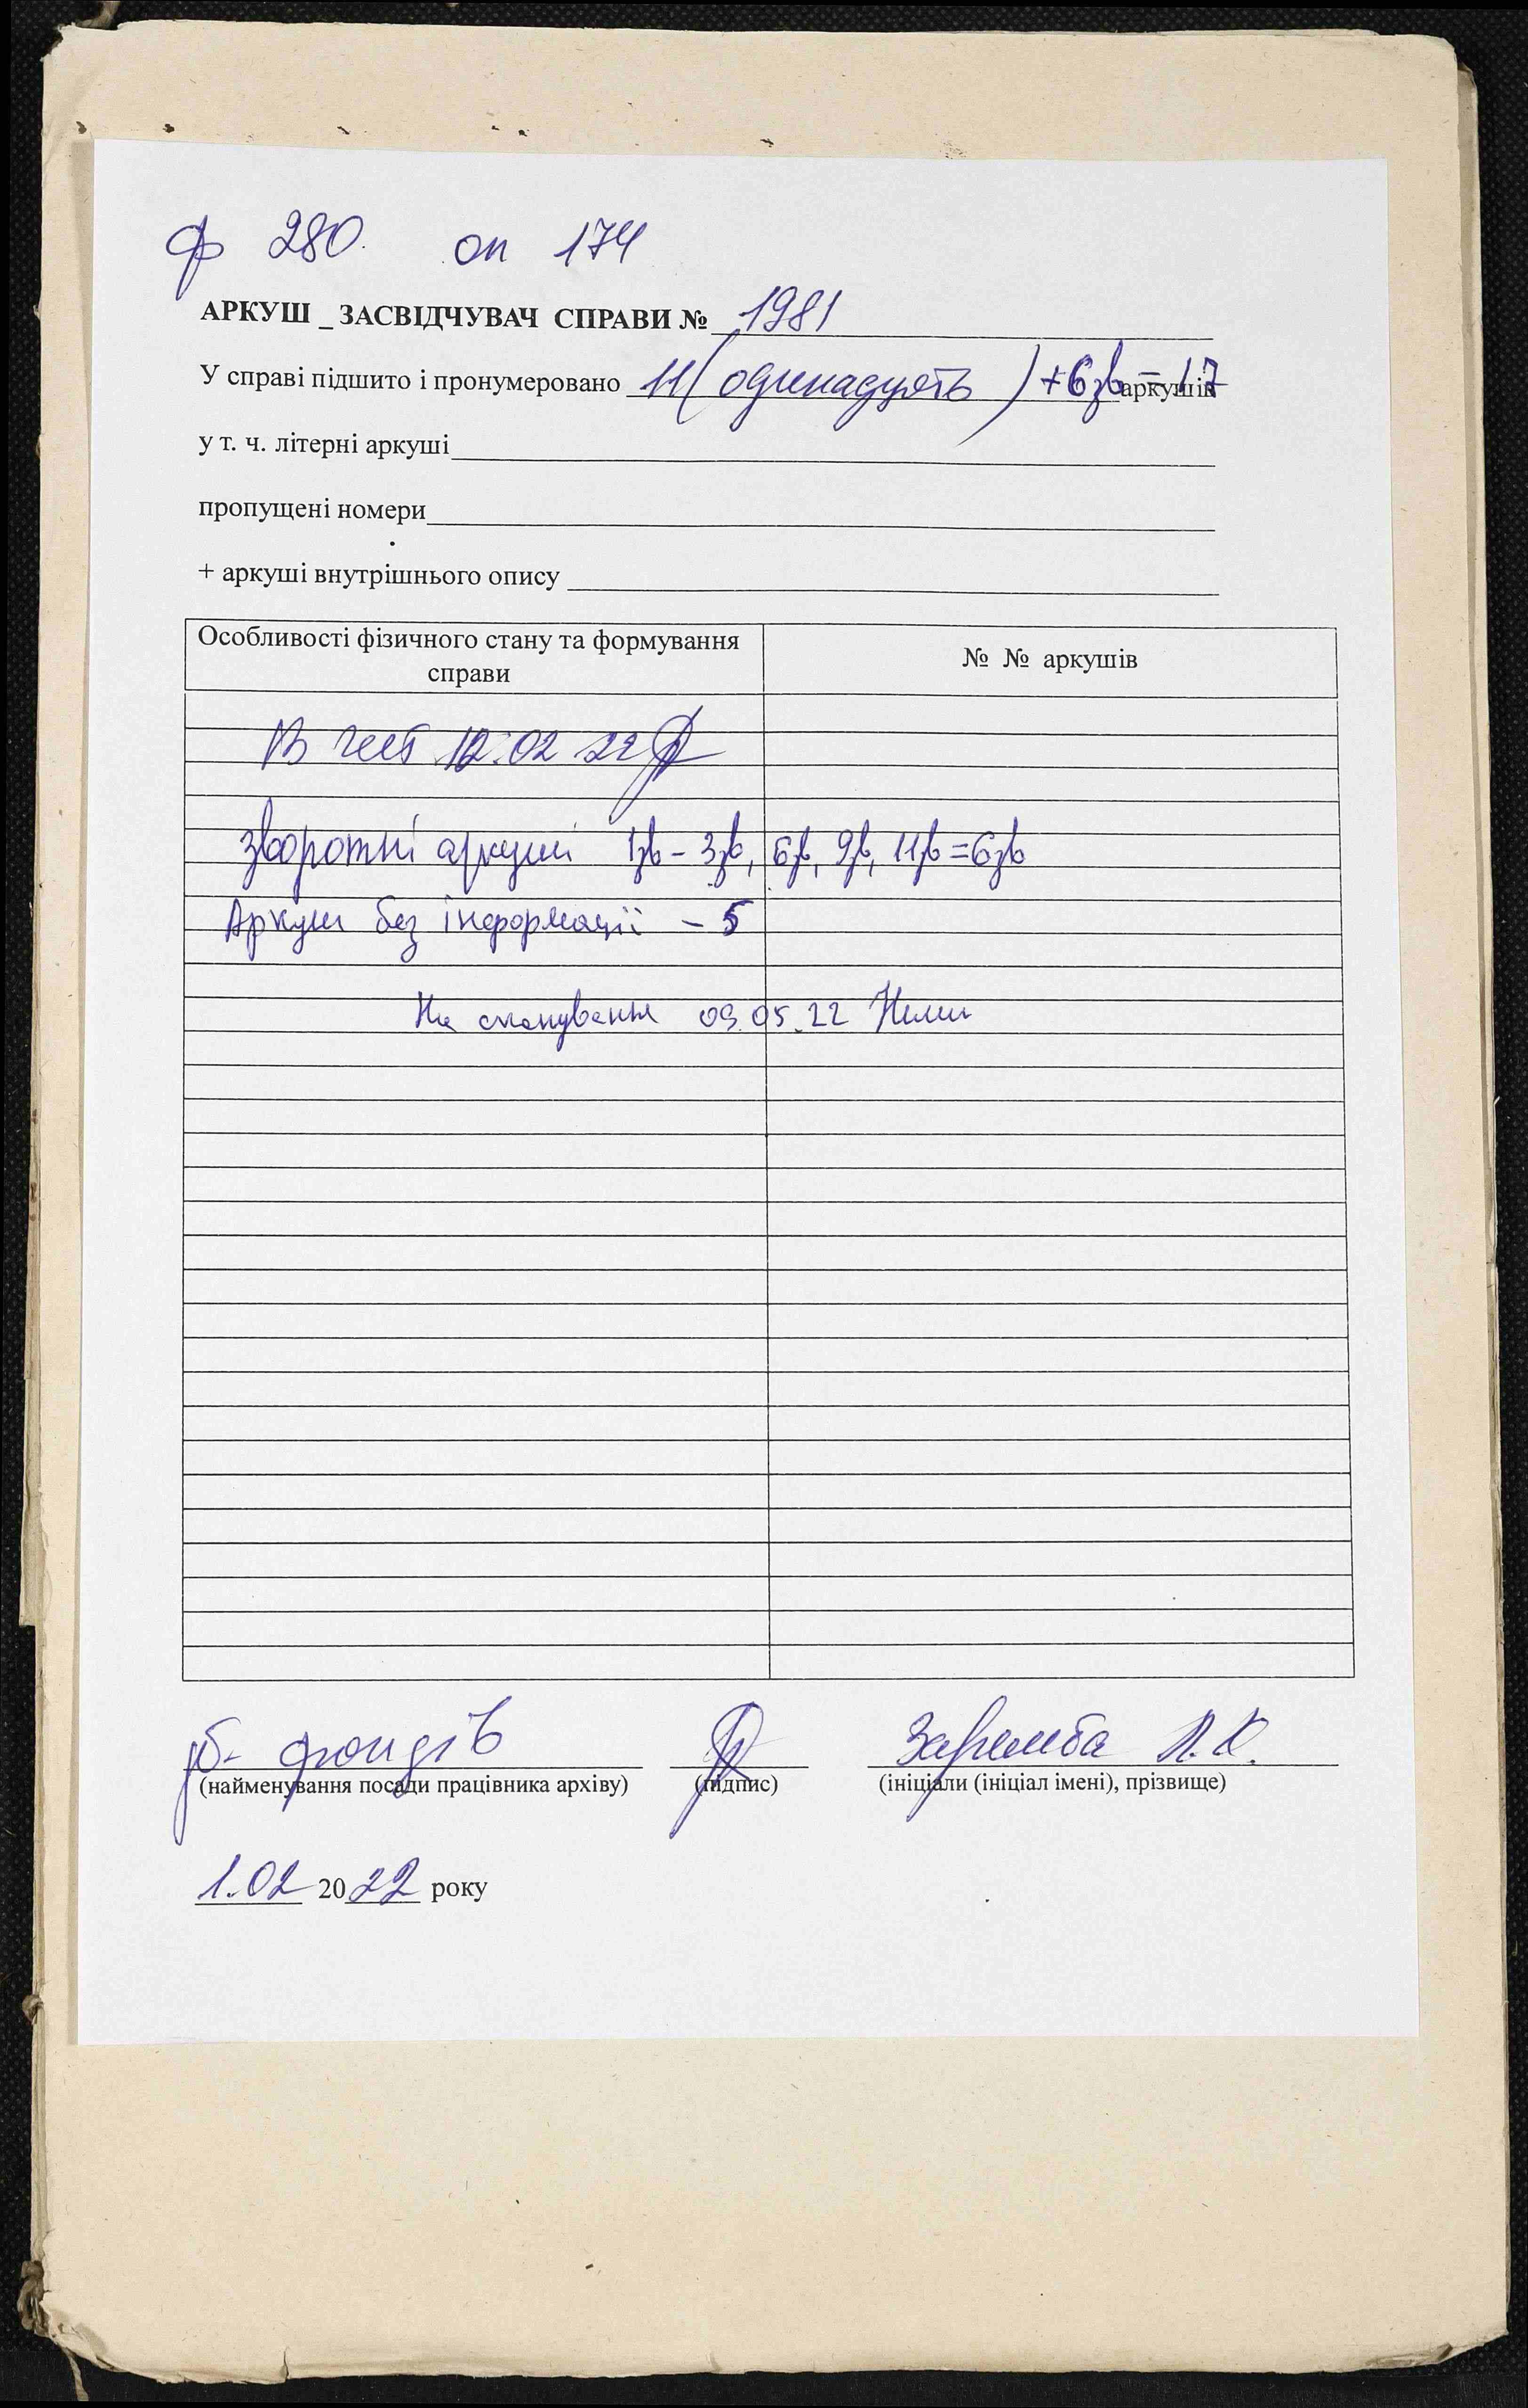 ф 280. оп 174
АРКУШ _ ЗАСВІДЧУВАЧ СПРАВИ № 1981
У справі підшито і пронумеровано 11 (одинадцять) +6зв = 17 аркушів
у т. ч. літерні аркуші
пропущені номери
+ аркуші внутрішнього опису
Особливості фізичного стану та формування справи
№ № аркушів
12.02 22
зворотні аркуші 1зв – 3зв, 6зв, 9зв, 11зв = 6зв
Аркуш без інформації – 5
На сканування 09.05.22
фондів
Заремба
(найменування посади працівника архіву) (підпис) (ініціали (ініціал імені), прізвище)
1.02 2022 року